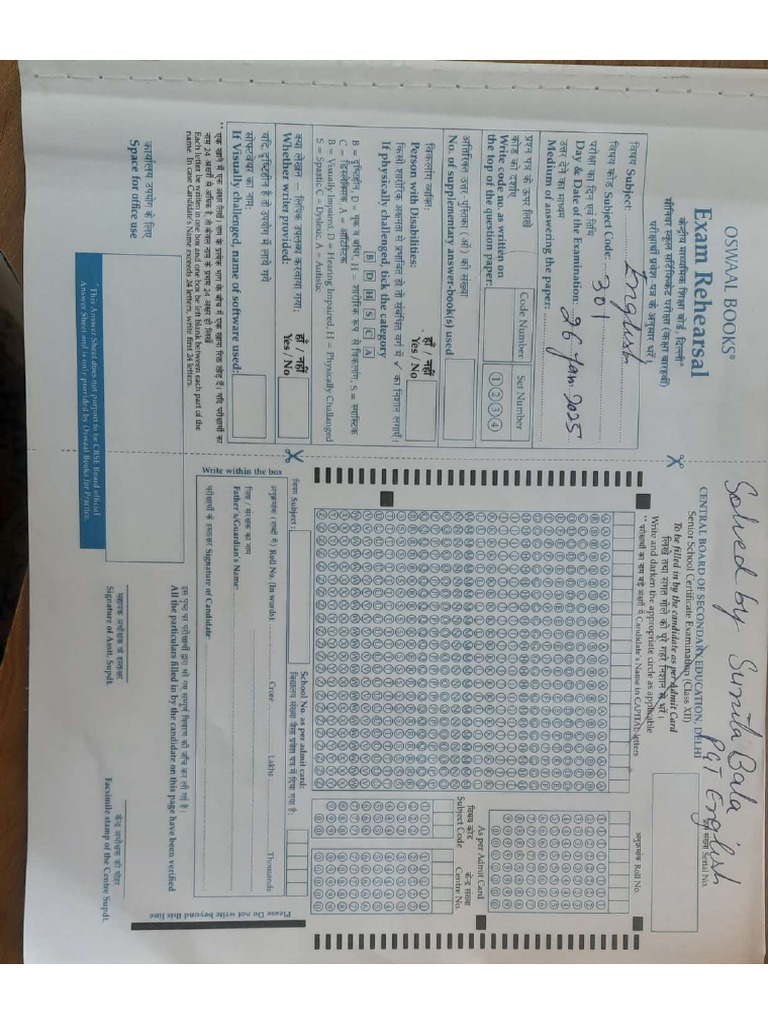 OSWAAL BOOKS®
Exam Rehearsal
केन्द्रीय माध्यमिक शिक्षा बोर्ड, दिल्ली*
सीनियर स्कूल सर्टिफिकेट परीक्षा (कक्षा बारहवीं)
परीक्षार्थी प्रवेश-पत्र के अनुसार भरें।
विषय Subject: English
विषय कोड Subject Code: 301
परीक्षा का दिन एवं तिथि
Day & Date of the Examination: 26 Jan. 2025
उत्तर देने का माध्यम
Medium of answering the paper:
प्रश्न पत्र के ऊपर लिखे
कोड को दर्शाए
Write code no. as written on
the top of the question paper:
Code Number
Set Number
① ② ③ ④
अतिरिक्त उत्तर-पुस्तिका (ओं) की संख्या
No. of supplementary answer-book(s) used
विकलांग व्यक्ति:
Person with Disabilities:
हाँ / नहीं
Yes / No
किसी शारीरिक अक्षमता से प्रभावित हो तो संबंधित वर्ग में ✓ का निशान लगाएँ।
If physically challenged, tick the category
B D H S C A
B = दृष्टिहीन, D = मूक व बधिर, H = शारीरिक रूप से विकलांग, S = स्पास्टिक
C = डिस्लेक्सिक, A = ऑटिस्टिक
B = Visually Impaired, D = Hearing Impaired, H = Physically Challanged
S = Spastic C = Dyslexic, A = Autistic
क्या लेखन – लिपिक उपलब्ध करवाया गया:
Whether writer provided:
हाँ / नहीं
Yes / No
यदि दृष्टिहीन है तो उपयोग में लाये गये
सोफ्टवेयर का नाम:
If Visually challenged, name of software used:
** एक खाने में एक अक्षर लिखें। नाम के प्रत्येक भाग के बीच में एक खाना रिक्त छोड़ दें। यदि परीक्षार्थी का
नाम 24 अक्षरों से अधिक है, तो केवल नाम के प्रथम 24 अक्षर ही लिखें
Each letter be written in one box and one box be left blank between each part of the
name. In case Candidate's Name exceeds 24 letters, write first 24 letters.
कार्यालय उपयोग के लिए
Space for office use
*This Answer Sheet does not purport to be CBSE Board official
Answer Sheet and is only provided by Oswaal Books for Practice.
Solved by Sunita Bala
PGT English
CENTRAL BOARD OF SECONDARY EDUCATION, DELHI
Senior School Certificate Examination (Class XII)
To be filled in by the candidate as per Admit Card
लिखें तथा संगत गोले को पूरे गहरे निशान से भरें।
Write and darken the appropriate circle as applicable
** परीक्षार्थी का नाम बड़े अक्षरों में Candidate's Name in CAPITAL letters
Serial No.
अनुक्रमांक Roll No.
As per Admit Card
विषय कोड
Subject Code
केन्द्र संख्या
Centre No.
Write within the box
विषय Subject :
School No. as per admit card:
विद्यालय संख्या जैसा प्रवेश पत्र में दिया गया है:
अनुक्रमांक (शब्दों में) Roll No. (In words):
Crore
Lakhs
Thousands
पिता / संरक्षक का नाम
Father's/Guardian's Name:
परीक्षार्थी के हस्ताक्षर Signature of Candidate:
Please Do not write beyond this line
इस पृष्ठ पर परीक्षार्थी द्वारा भरे गए सम्पूर्ण विवरण की जाँच कर ली गई है।
All the particulars filled in by the candidate on this page have been verified
सहायक अधीक्षक के हस्ताक्षर
Signature of Asstt. Supdt.
केन्द्र अधीक्षक की मोहर
Facsimile stamp of the Centre Supdt.